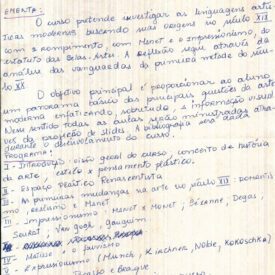 EMENTA:
O curso pretende investigar as linguagens artís
ticas modernas buscando suas origens no século XIX
com o rompimento, com Manet e o Impressionismo, do
estatuto das Belas Artes. A reflexão segue através da
análise das vanguardas da primeira metade do sécu
lo XX
O objetivo principal é proporcionar ao aluno
um panorama básico das principais questões da arte
moderna enfatizando, sobretudo, a informação visual
Nesse sentido todas as aulas serão ministradas atra-
vés de projeção de slides. A bibliografia será dada
durante o desenvolvimento do curso.
PROGRAMA:
I - Introdução: visão geral do curso, conceito de história
da arte, estilo e pensamento plástico.
II - Espaço Plástico Renascentista
III - As primeiras mudanças na arte no século XIX: romantis
mo, realismo e Manet
III - Impressionismo: Manet e Monet, Cézanne, Degas,
Seurat, Van Gogh, Gauguin
IV - Matisse, o fauvismo
V - Expressionismo (Munch, Kirchner, Nolde, Kokoschka)
Picasso e Braque